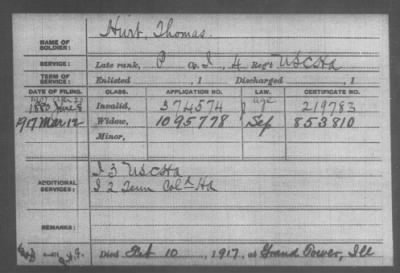 NAME OF SOLDIER: Hurt, Thomas.
SERVICE: Late rank, P Co. I, 4 Reg't U.S.C.H.A.
TERM OF SERVICE: Enlisted , 1 Discharged , 1
DATE OF FILING. CLASS. APPLICATION NO. LAW. CERTIFICATE NO.
1880 June 8 Invalid, 374574 age 219783
1917 Mar 12 Widow, 1095778 Sep 853810
Minor,
ADDITIONAL SERVICES: I 3 U.S.C.H.A.
I 2 Tenn Cold H.A.
REMARKS:
Died Feb 10, 1917, at Grand Tower, Ill